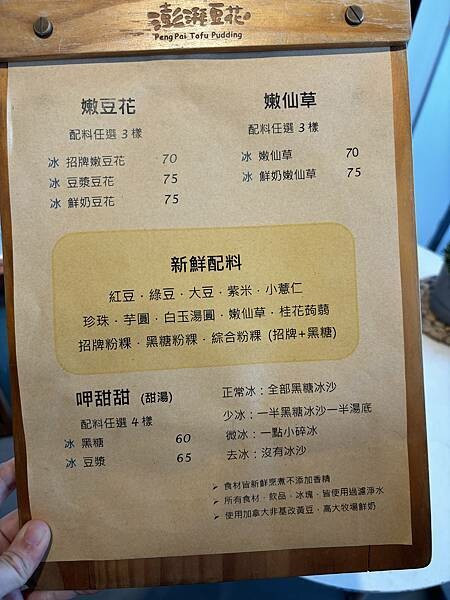 澎湃豆花
PengPai Tofu Pudding
嫩豆花
配料任選 3 樣
冰 招牌嫩豆花 70
冰 豆漿豆花 75
冰 鮮奶豆花 75
嫩仙草
配料任選 3 樣
冰 嫩仙草 70
冰 鮮奶嫩仙草 75
新鮮配料
紅豆．綠豆．大豆．紫米．小薏仁
珍珠．芋圓．白玉湯圓．嫩仙草．桂花蒟蒻
招牌粉粿．黑糖粉粿．綜合粉粿 (招牌+黑糖)
呷甜甜 (甜湯)
配料任選 4 樣
冰 黑糖 60
冰 豆漿 65
正常冰：全部黑糖冰沙
少冰：一半黑糖冰沙一半湯底
微冰：一點小碎冰
去冰：沒有冰沙
➢ 食材皆新鮮烹煮不添加香精
➢ 所有食材．飲品．冰塊．皆使用過濾淨水
➢ 使用加拿大非基改黃豆．高大牧場鮮奶